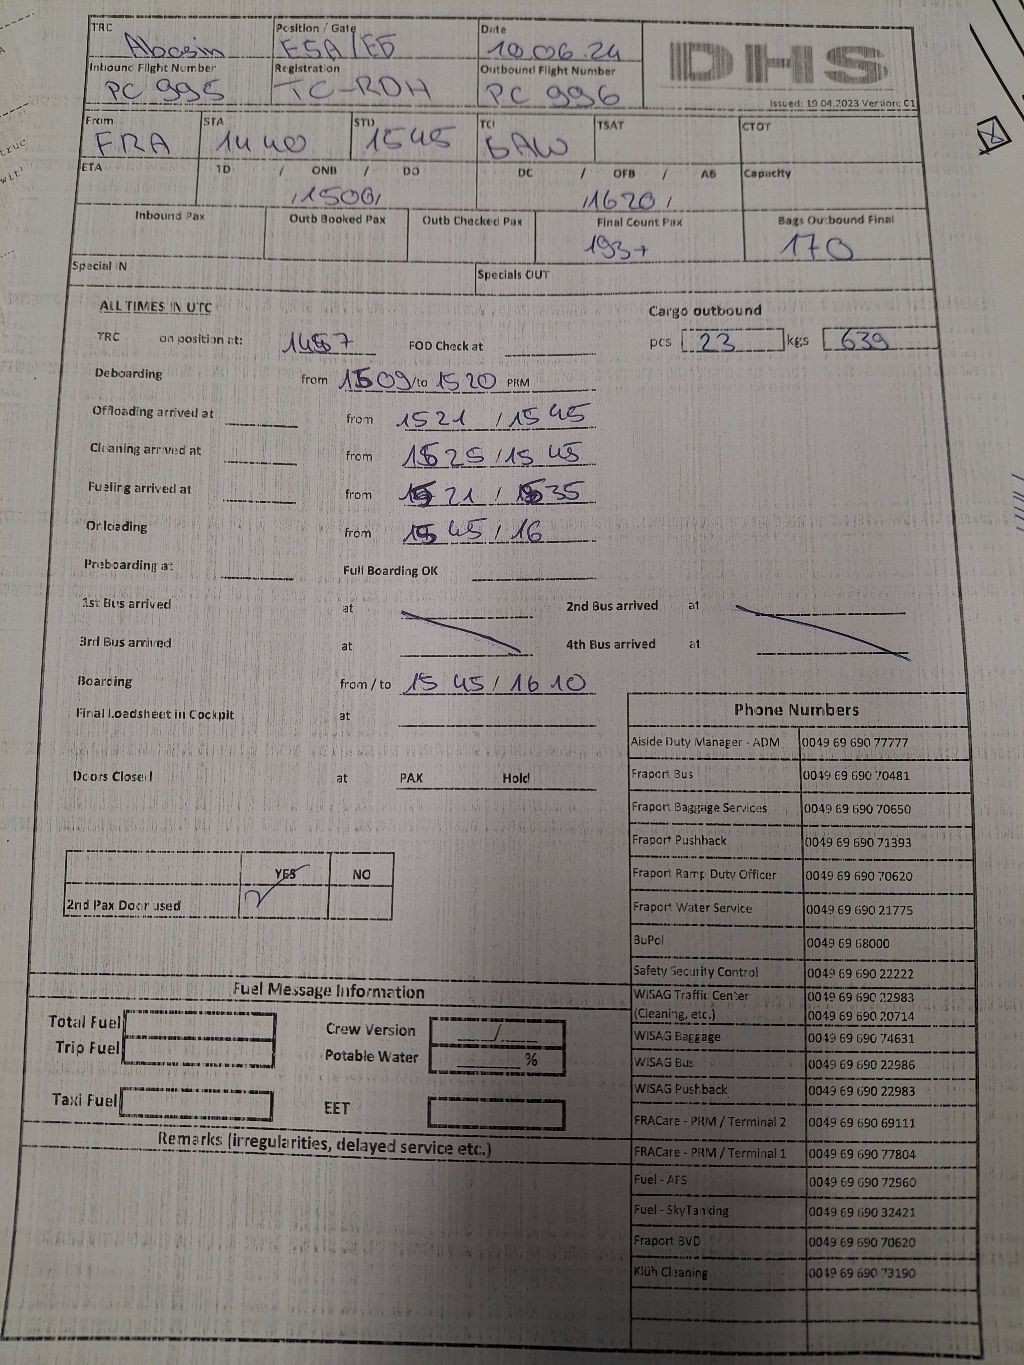 TRC Position / Gate Date
Abasin E5A/E5 10.06.24 DHS
Inbound Flight Number Registration Outbound Flight Number
PC 995 TC-RDH PC 996
Issued: 19.04.2023 Version: 01
From STA STD TCI TSAT CTOT
FRA 1440 1545 BAW
ETA TD / ONB / DO DC / OFB / AB Capacity
/1500/ /1620/
Inbound Pax Outb Booked Pax Outb Checked Pax Final Count Pax Bags Outbound Final
193+ 170
Special IN Specials OUT
ALL TIMES IN UTC Cargo outbound
TRC on position at: 1457 FOD Check at pcs 23 kgs 639
Deboarding from 1509/to 1520 PRM
Offloading arrived at from 1521 / 1545
Cleaning arrived at from 1525 / 1545
Fueling arrived at from 1521 / 1535
Onloading from 1545 / 16
Preboarding at Full Boarding OK
1st Bus arrived at 2nd Bus arrived at
3rd Bus arrived at 4th Bus arrived at
Boarding from / to 1545 / 1610
Final Loadsheet in Cockpit at
Doors Closed at PAX Hold
YES NO
2nd Pax Door used ✓
Phone Numbers
Aiside Duty Manager - ADM 0049 69 690 77777
Fraport Bus 0049 69 690 70481
Fraport Baggage Services 0049 69 690 70650
Fraport Pushback 0049 69 690 71393
Fraport Ramp Duty Officer 0049 69 690 70620
Fraport Water Service 0049 69 690 21775
BuPol 0049 69 68000
Safety Security Control 0049 69 690 22222
WISAG Traffic Center 0049 69 690 22983
(Cleaning, etc.) 0049 69 690 20714
WISAG Baggage 0049 69 690 74631
WISAG Bus 0049 69 690 22986
WISAG Pushback 0049 69 690 22983
FRACare - PRM / Terminal 2 0049 69 690 69111
FRACare - PRM / Terminal 1 0049 69 690 77804
Fuel - AFS 0049 69 690 72960
Fuel - SkyTanking 0049 69 690 32421
Fraport BVD 0049 69 690 70620
Klüh Cleaning 0049 69 690 73190
Fuel Message Information
Total Fuel Crew Version /
Trip Fuel Potable Water %
Taxi Fuel EET
Remarks (irregularities, delayed service etc.)